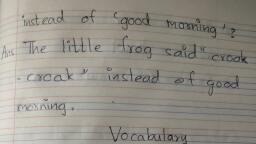 instead of 'good morning'?
Ans The little frog said "croak
-croak" instead of good
morning.
Vocabulary